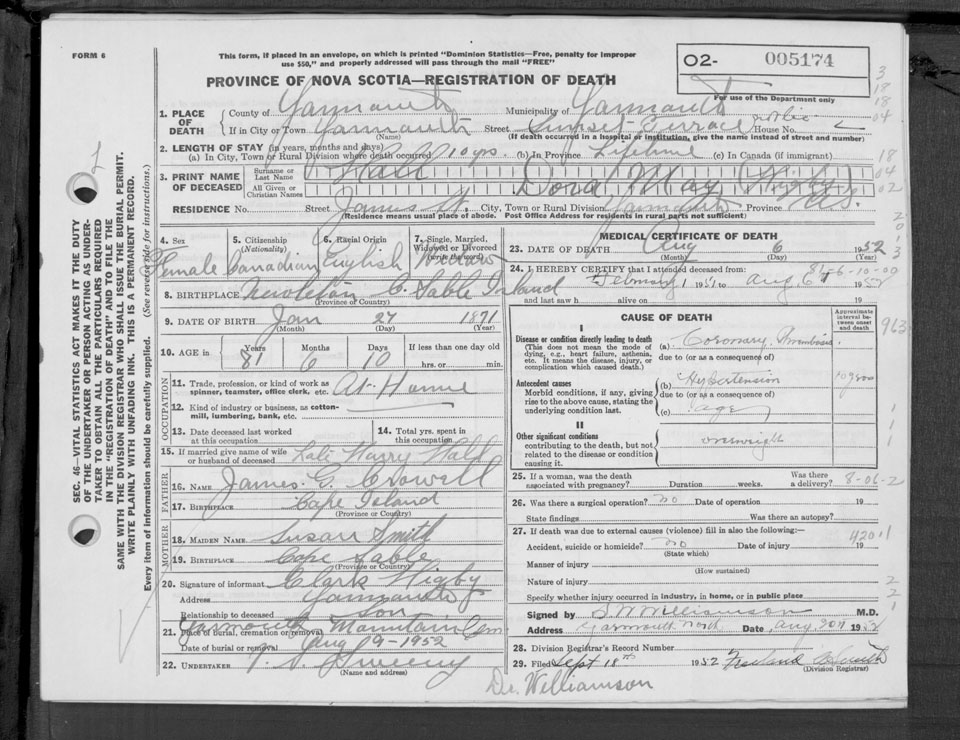 FORM 6
This form, if placed in an envelope, on which is printed "Dominion Statistics—Free, penalty for improper
use $50," and properly addressed will pass through the mail "FREE"
02- 005174
PROVINCE OF NOVA SCOTIA—REGISTRATION OF DEATH
For use of the Department only
1. PLACE OF DEATH
County of Yarmouth Municipality of Yarmouth
If in City or Town Yarmouth Street Sunset Terrace House No.
(Name) (If death occurred in a hospital or institution, give the name instead of street and number)
2. LENGTH OF STAY (in years, months and days)
(a) In City, Town or Rural Division where death occurred 10 yrs. (b) In Province Lifetime (c) In Canada (if immigrant)
3. PRINT NAME OF DECEASED
Surname or Last Name Hall
All Given or Christian Names Dora May
RESIDENCE No. Street James St. City, Town or Rural Division Yarmouth Province N.S.
(Residence means usual place of abode. Post Office Address for residents in rural parts not sufficient)
4. Sex Female
5. Citizenship (Nationality) Canadian
6. Racial Origin English
7. Single, Married, Widowed or Divorced (write the word) Widow
8. BIRTHPLACE Newellton C. Sable Island
(Province or Country)
9. DATE OF BIRTH Jan 27 1871
(Month) (Day) (Year)
10. AGE in Years Months Days If less than one day
81 6 10 hrs. or min.
OCCUPATION
11. Trade, profession, or kind of work as spinner, teamster, office clerk, etc. At Home
12. Kind of industry or business, as cotton-mill, lumbering, bank, etc.
13. Date deceased last worked at this occupation
14. Total yrs. spent in this occupation
15. If married give name of wife or husband of deceased Late Harry Hall
FATHER
16. NAME James E. Crowell
17. BIRTHPLACE Cape Island
(Province or Country)
MOTHER
18. MAIDEN NAME Susan Smith
19. BIRTHPLACE Cape Sable
(Province or Country)
20. Signature of informant Clark Nigby
Address Yarmouth
Relationship to deceased son
21. Place of burial, cremation or removal Yarmouth Mountain Cem
Date of burial or removal Aug 9-1952
22. UNDERTAKER V. S. Sweeny
(Name and address)
MEDICAL CERTIFICATE OF DEATH
23. DATE OF DEATH Aug 6 1952
(Month) (Day)
24. I HEREBY CERTIFY that I attended deceased from:
February 1951 to Aug 6th 1952
and last saw h alive on 19
CAUSE OF DEATH
Approximate interval between onset and death
I
Disease or condition directly leading to death
(This does not mean the mode of dying, e.g., heart failure, asthenia, etc. It means the disease, injury, or complication which caused death.)
(a) Coronary Thrombosis
due to (or as a consequence of)
Antecedent causes
Morbid conditions, if any, giving rise to the above cause, stating the underlying condition last.
(b) Hypertension
due to (or as a consequence of)
(c) age
II
Other significant conditions
contributing to the death, but not related to the disease or condition causing it.
overweight
25. If a woman, was the death associated with pregnancy? Duration weeks. Was there a delivery?
8-06-2
26. Was there a surgical operation? no Date of operation 19
State findings Was there an autopsy?
27. If death was due to external causes (violence) fill in also the following:—
Accident, suicide or homicide? no Date of injury 19
(State which)
Manner of injury
(How sustained)
Nature of injury
Specify whether injury occurred in industry, in home, or in public place
Signed by S. W. Williamson M.D.
Address Yarmouth North Date Aug 20th 1952
28. Division Registrar's Record Number
29. Filed Sept 18th 1952
(Division Registrar)
Dr. Williamson
SEC. 46—VITAL STATISTICS ACT MAKES IT THE DUTY
OF THE UNDERTAKER OR PERSON ACTING AS UNDERTAKER
TO OBTAIN ALL THE PARTICULARS REQUIRED
IN THE "REGISTRATION OF DEATH" AND TO FILE THE
SAME WITH THE DIVISION REGISTRAR WHO SHALL ISSUE THE BURIAL PERMIT.
WRITE PLAINLY WITH UNFADING INK. THIS IS A PERMANENT RECORD.
Every item of information should be carefully supplied. (See reverse side for instructions.)